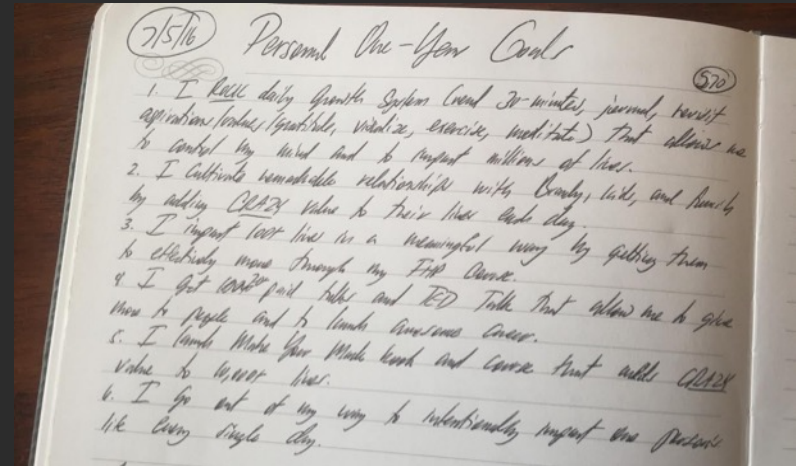 7/5/16 Personal One-Year Goals
570
1. I ROCK daily growth system (read 30-minutes, journal, revisit
aspirations/values/gratitude, visualize, exercise, meditate) that allows me
to control my mind and to impact millions of lives.
2. I cultivate remarkable relationships with kids, and family
by adding CRAZY value to their lives each day.
3. I impact lives in a meaningful way by getting them
to effectively move through my course.
4. I got paid talks and TED Talk that allow me to give
more to people and to launch awesome career.
5. I launch Make Your Mark book and course that adds CRAZY
value to lives.
6. I go out of my way to intentionally impact one person's
life every single day.